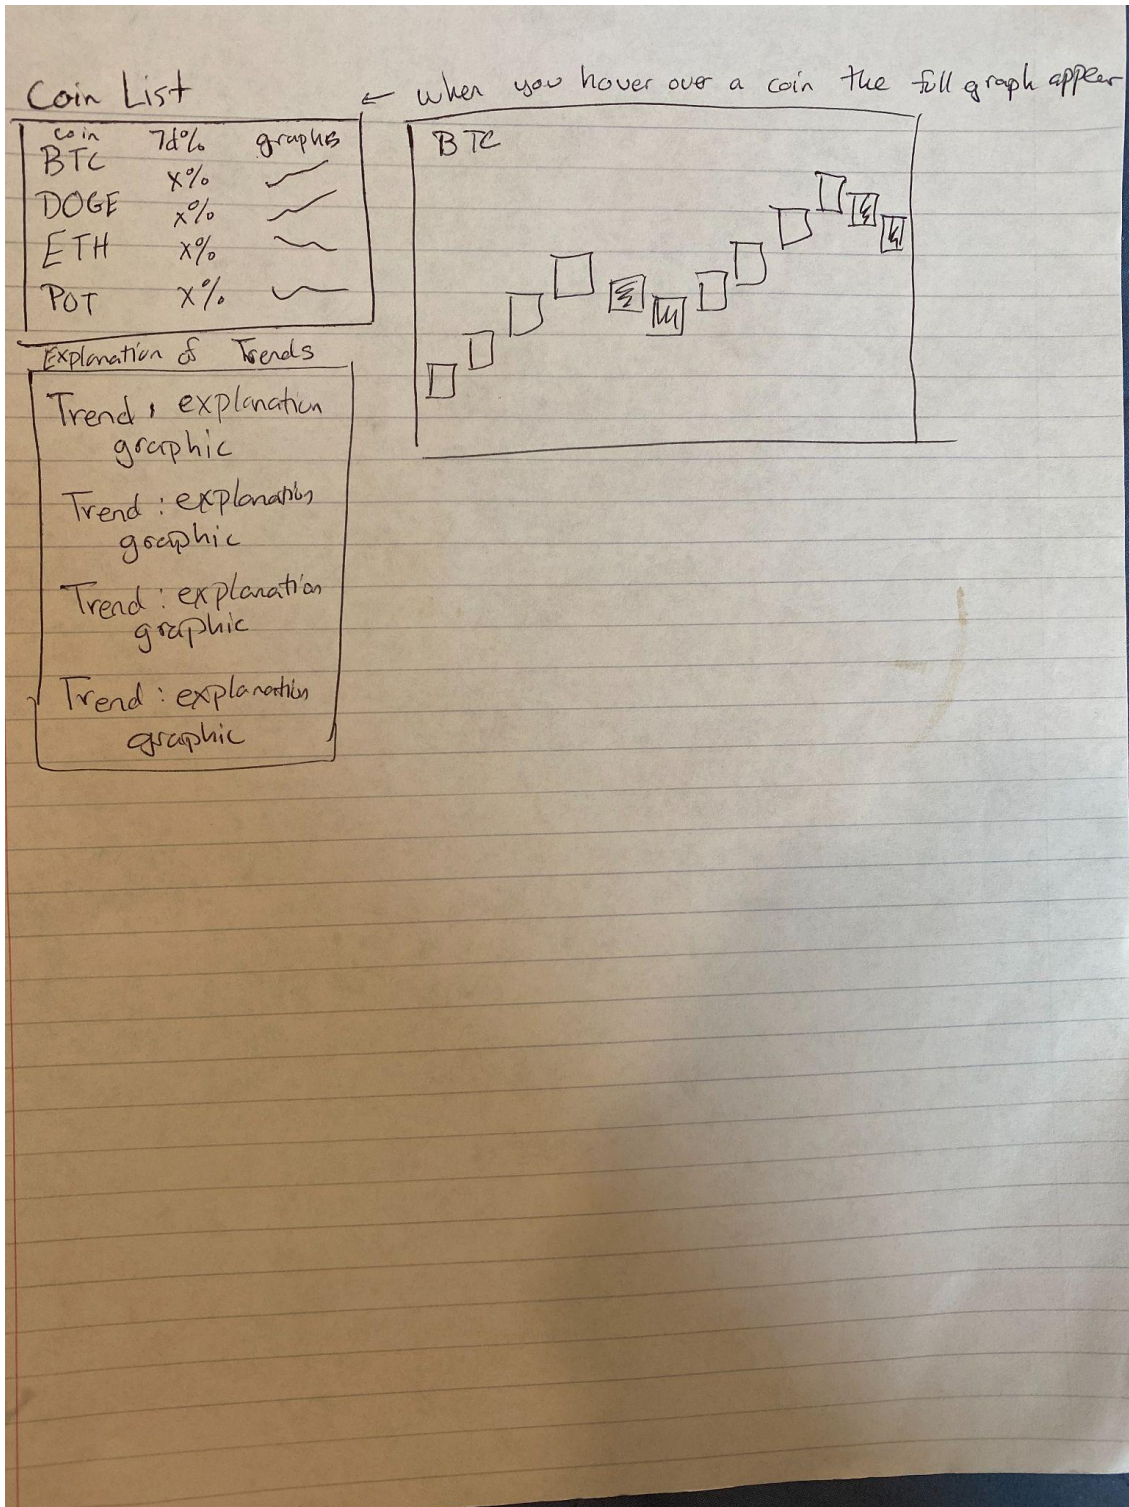 Coin List
← when you hover over a coin the full graph appear
coin 7d% graphs
BTC x%
DOGE x%
ETH x%
POT x%
BTC
Explanation of Trends
Trend: explanation
graphic
Trend: explanation
graphic
Trend: explanation
graphic
Trend: explanation
graphic